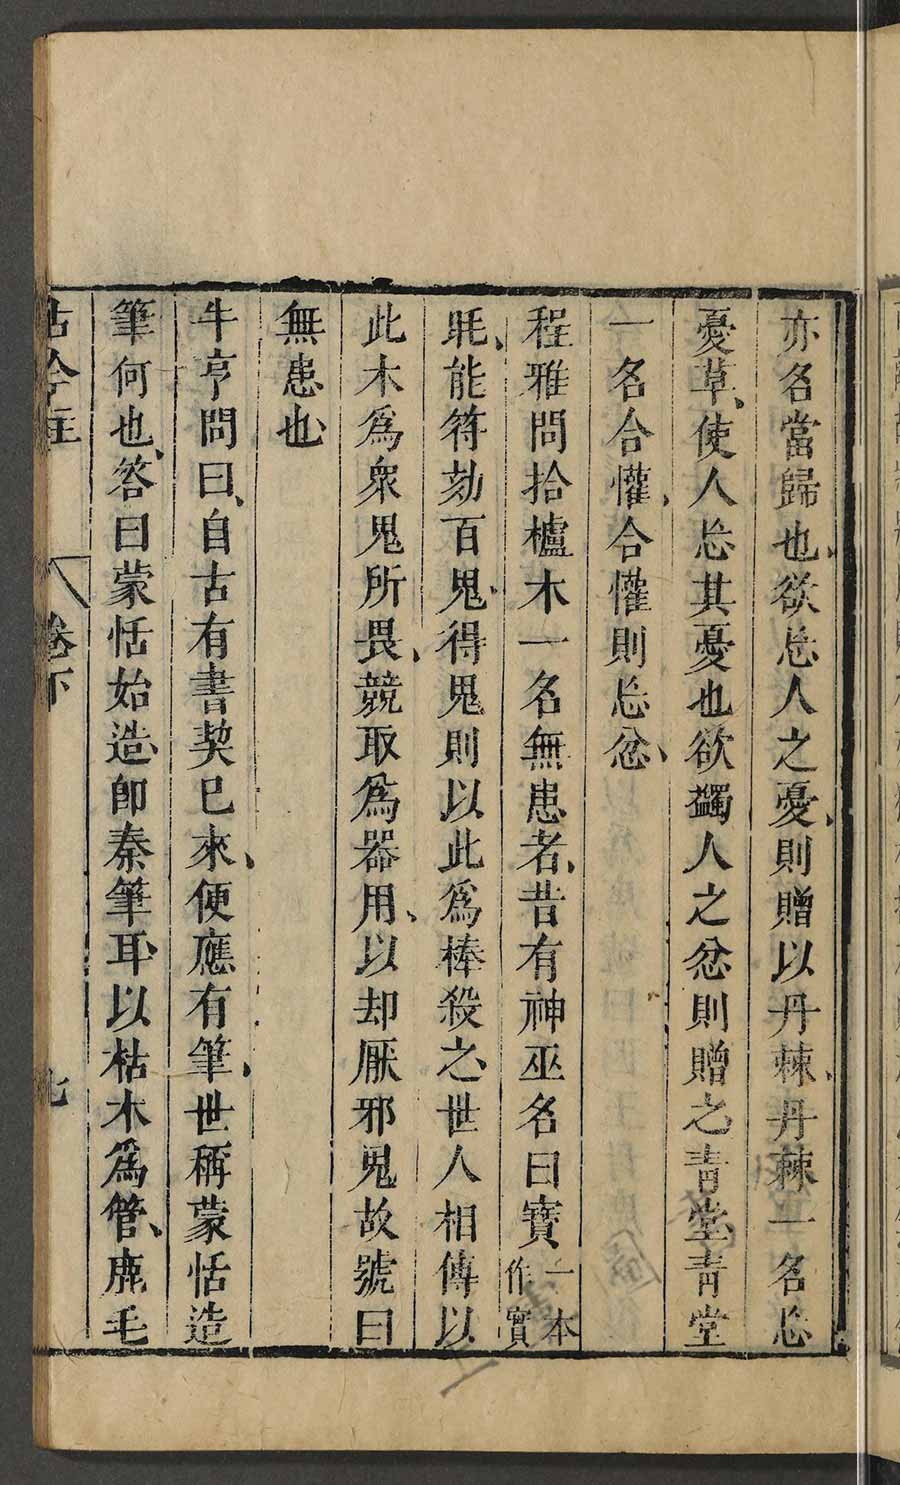 亦名當歸也欲忘人之憂則贈以丹棘丹棘一名忘
憂草使人忘其憂也欲蠲人之忿則贈之青堂青堂
一名合懽合懽則忘忿
程雅問拾櫨木一名無患者昔有神巫名曰寶一本作實
眊能符劾百鬼得鬼則以此爲棒殺之世人相傳以
此木爲衆鬼所畏競取爲器用以却厭邪鬼故號曰
無患也
牛亨問曰自古有書契已來便應有筆世稱蒙恬造
筆何也答曰蒙恬始造卽秦筆耳以枯木爲管鹿毛
古今注 卷下 七